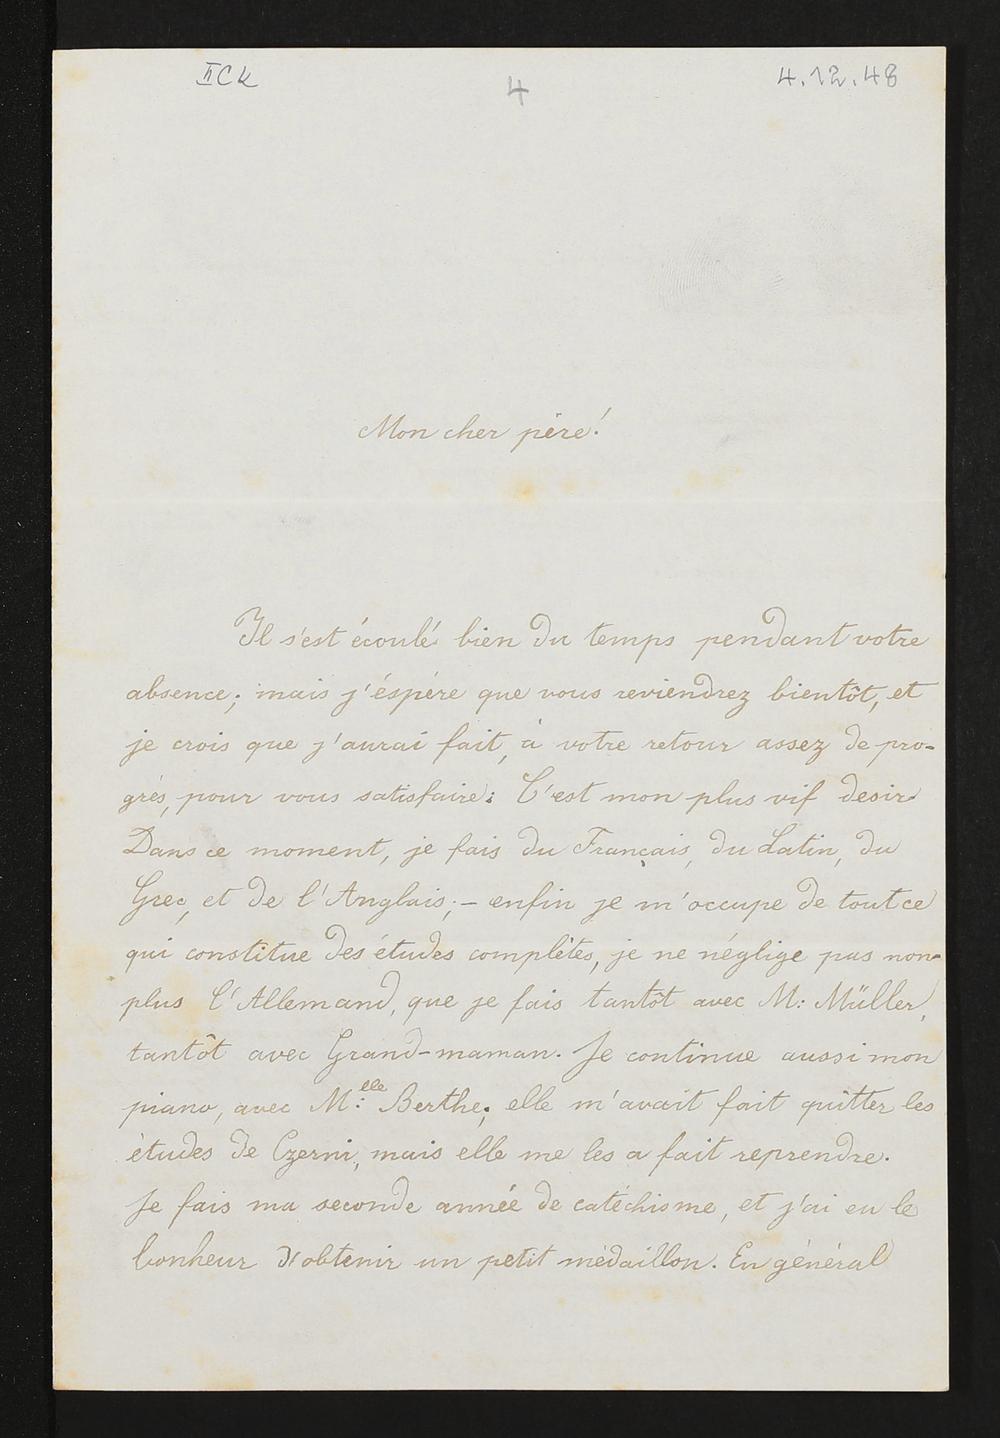 IICk
4
4.12.48
Mon cher père!
Il s'est écoulé bien du temps pendant votre
absence; mais j'éspére que vous reviendrez bientôt, et
je crois que j'aurai fait, à votre retour assez de pro-
grés, pour vous satisfaire: C'est mon plus vif desir
Dans ce moment, je fais du Français, du Latin, du
Grec, et de l'Anglais;- enfin je m'occupe de tout ce
qui constitue des études complètes, je ne néglige pas non-
plus l'Allemand, que je fais tantôt avec M: Müller,
tantôt avec Grand-maman. Je continue aussi mon
piano, avec M:elle Berthe; elle m'avait fait quitter les
études de Czerni, mais elle me les a fait reprendre.
Je fais ma seconde année de catéchisme, et j'ai eu le
bonheur d'obtenir un petit médaillon. En général